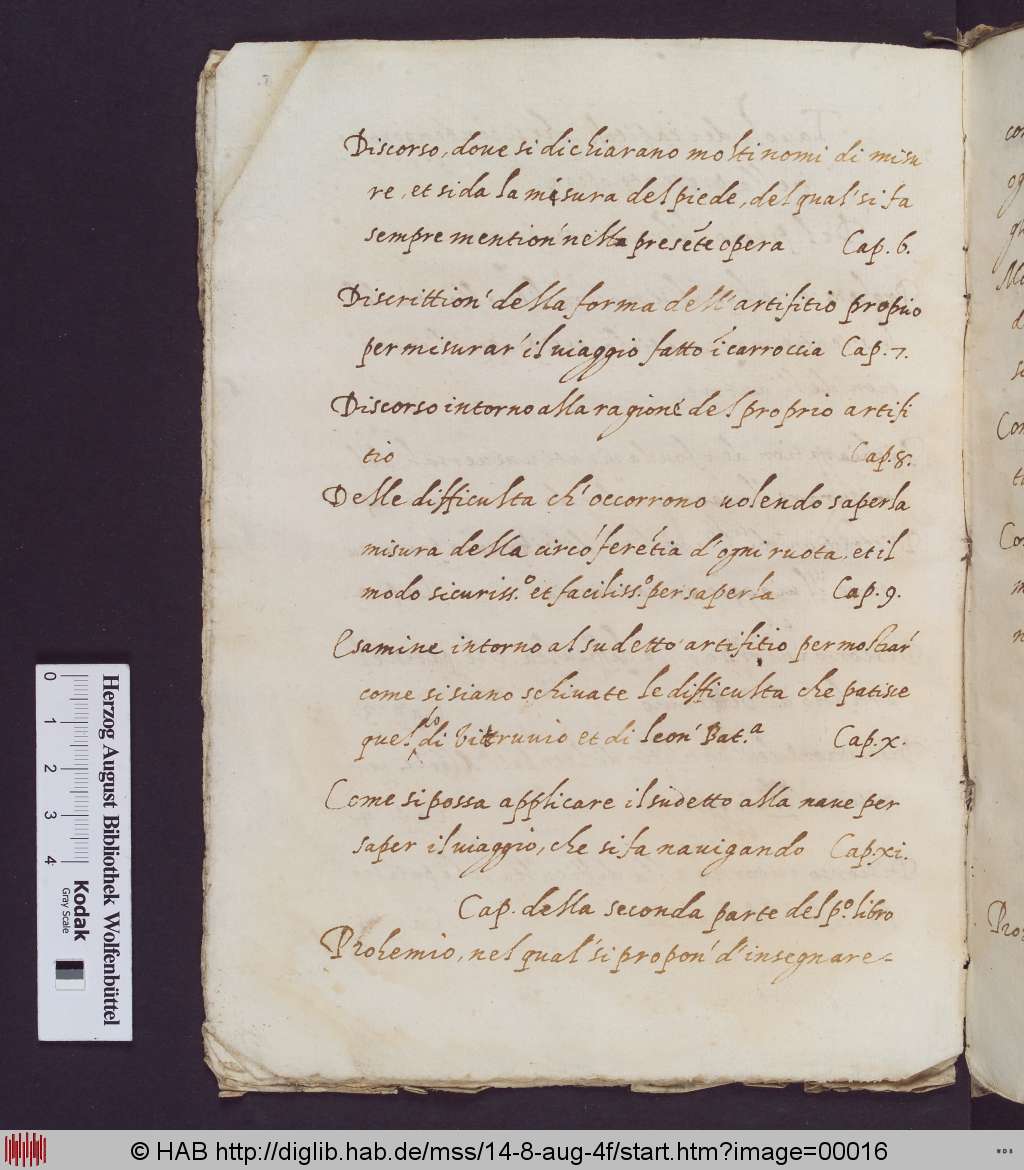 Discorso, doue si dichiarano molti nomi di misu
re, et si da la misura del piede, del qual' si fa
sempre mention' nella presēte opera Cap. 6.
Discrittion' della forma dell' artifitio proprio
per misurar' il uiaggio fatto ī carroccia Cap. 7.
Discorso intorno alla ragione del proprio artifi
tio Cap. 8.
Delle difficulta ch' occorrono uolendo saper la
misura della circōferētia d' ogni ruota, et il
modo sicuriss.º et faciliss.º per saperla Cap. 9.
Esamine intorno al sudetto artifitio per mostrar'
come si siano schiuate le difficulta che patisce
quello di Vittruuio et di leon' Bat.ª Cap. x.
Come si possa applicare il sudetto alla naue per
saper il uiaggio, che si fa nauigando Cap. xi.
Cap. della seconda parte del pº. libro
Prohemio, nel qual' si propon' d' insegnare-
Herzog August Bibliothek Wolfenbüttel
0 1 2 3 4
Kodak
Gray Scale
© HAB http://diglib.hab.de/mss/14-8-aug-4f/start.htm?image=00016